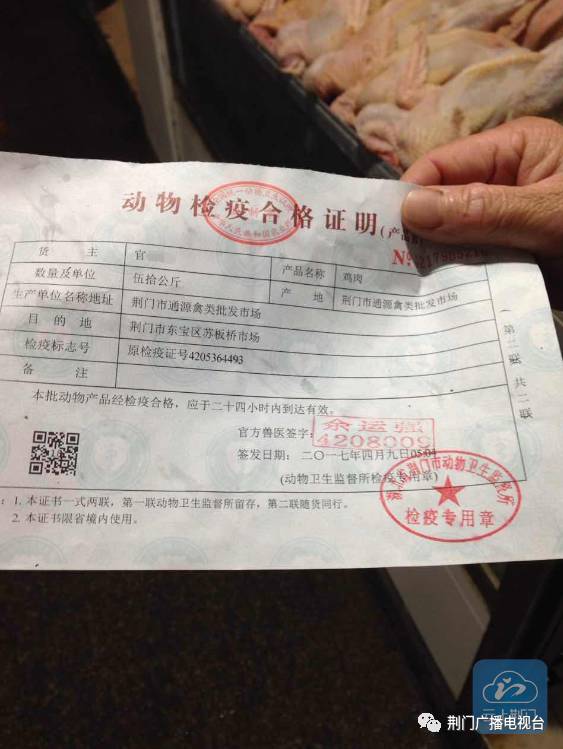 动物检疫合格证明(产品
№
货主 官 产品名称 鸡肉
数量及单位 伍拾公斤 产地 荆门市通源禽类批发市场
生产单位名称地址 荆门市通源禽类批发市场
目的地 荆门市东宝区苏板桥市场
检疫标志号 原检疫证号4205364493
备注
本批动物产品经检疫合格，应于二十四小时内到达有效。
官方兽医签字:
余运强
4208009
签发日期: 二〇一七年四月九日05:04
(动物卫生监督所检疫专用章)
荆门市动物卫生监督所
检疫专用章
：1. 本证书一式两联，第一联动物卫生监督所留存，第二联随货同行。
2. 本证书限省境内使用。
(第二联 共二联
云上荆门
荆门广播电视台